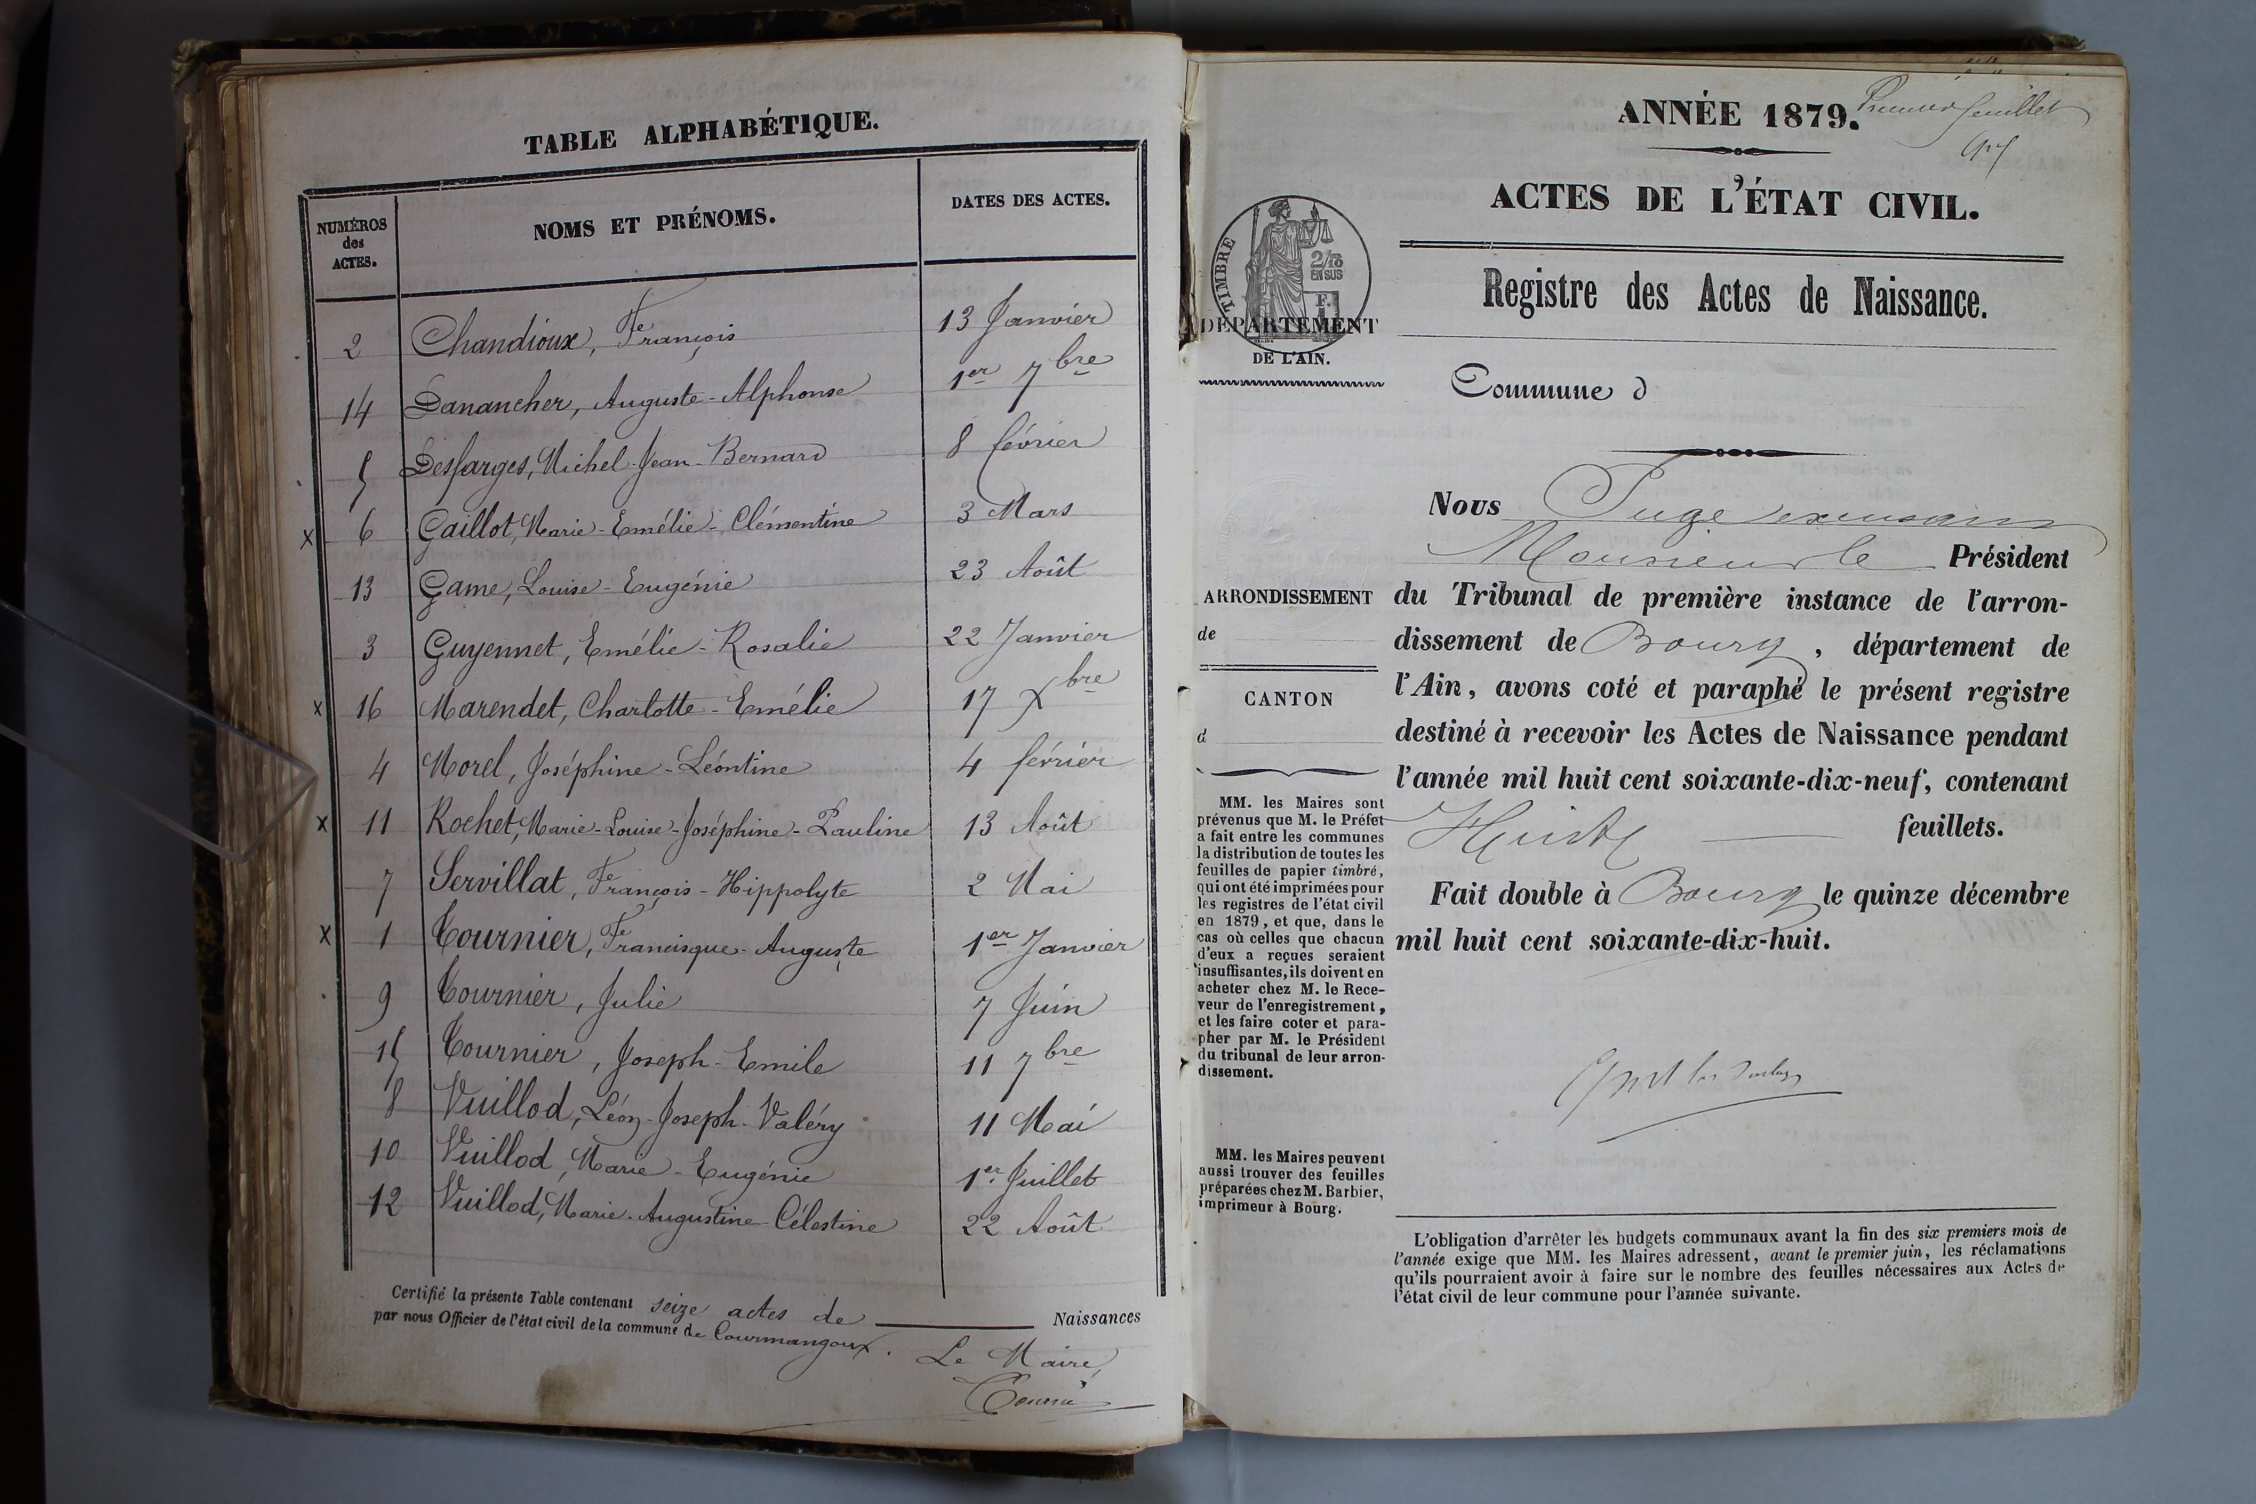 TABLE ALPHABÉTIQUE.
NUMÉROS des ACTES.
NOMS ET PRÉNOMS.
DATES DES ACTES.
2 Chandioux, François 13 Janvier
14 Danancher, Auguste-Alphonse 1er 7bre
5 Desfarges, Michel-Jean-Bernard 8 février
x 6 Gaillot, Marie-Emélie-Clémentine 3 Mars
13 Game, Louise-Eugénie 23 Août
3 Guyennet, Emélie-Rosalie 22 Janvier
x 16 Marendet, Charlotte-Emélie 17 Xbre
4 Morel, Joséphine-Léontine 4 février
x 11 Rochet, Marie-Louise-Joséphine-Pauline 13 Août
7 Servillat, François-Hippolyte 2 Mai
x 1 Tournier, Francisque-Auguste 1er Janvier
9 Tournier, Julie 7 Juin
15 Tournier, Joseph-Emile 11 7bre
8 Vuillod, Léon-Joseph-Valéry 11 Mai
10 Vuillod, Marie-Eugénie 1er Juillet
12 Vuillod, Marie-Augustine-Célestine 22 Août
Certifié la présente Table contenant seize actes de Naissances
par nous Officier de l'état civil de la commune de Courmangoux.
Le Maire,
ANNÉE 1879.
Premier feuillet
ACTES DE L'ÉTAT CIVIL.
TIMBRE
2/10
EN SUS
DÉPARTEMENT
DE L'AIN.
Registre des Actes de Naissance.
Commune d
ARRONDISSEMENT
de
CANTON
d
MM. les Maires sont
prévenus que M. le Préfet
a fait entre les communes
la distribution de toutes les
feuilles de papier timbré,
qui ont été imprimées pour
les registres de l'état civil
en 1879, et que, dans le
cas où celles que chacun
d'eux a reçues seraient
insuffisantes, ils doivent en
acheter chez M. le Rece-
veur de l'enregistrement,
et les faire coter et para-
pher par M. le Président
du tribunal de leur arron-
dissement.
MM. les Maires peuvent
aussi trouver des feuilles
préparées chez M. Barbier,
imprimeur à Bourg.
Nous Juge
Monsieur le Président
du Tribunal de première instance de l'arron-
dissement de Bourg, département de
l'Ain, avons coté et paraphé le présent registre
destiné à recevoir les Actes de Naissance pendant
l'année mil huit cent soixante-dix-neuf, contenant
Huit feuillets.
Fait double à Bourg le quinze décembre
mil huit cent soixante-dix-huit.
L'obligation d'arrêter les budgets communaux avant la fin des six premiers mois de
l'année exige que MM. les Maires adressent, avant le premier juin, les réclamations
qu'ils pourraient avoir à faire sur le nombre des feuilles nécessaires aux Actes de
l'état civil de leur commune pour l'année suivante.